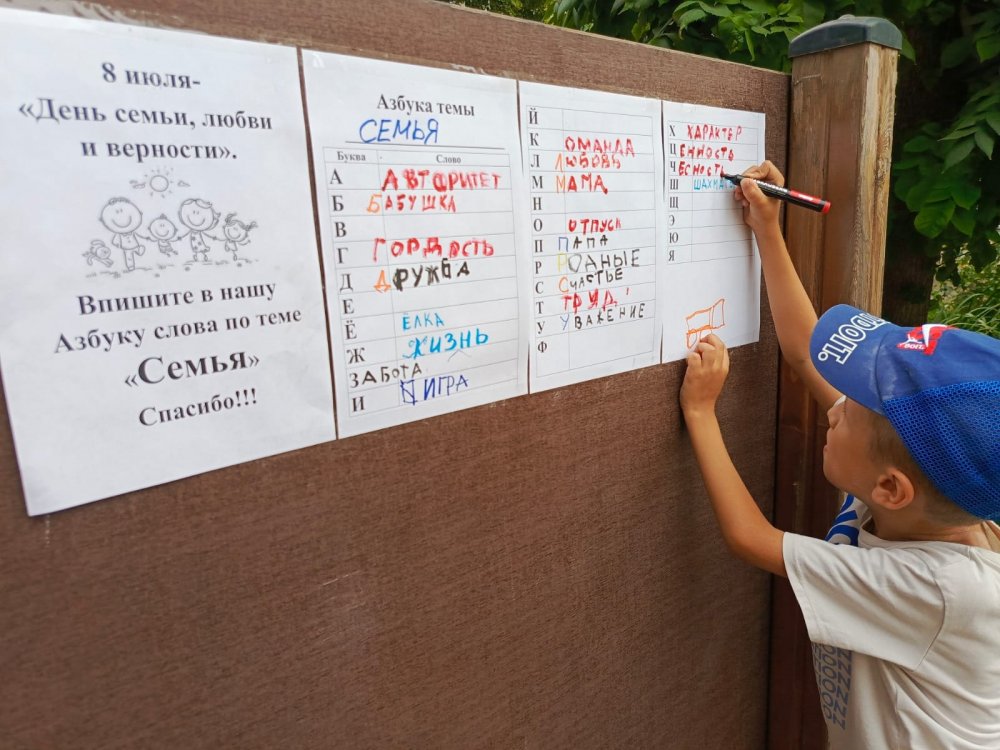 8 июля-
«День семьи, любви
и верности».
Впишите в нашу
Азбуку слова по теме
«Семья»
Спасибо!!!
Азбука темы
СЕМЬЯ
Буква Слово
А АВТОРИТЕТ
Б БАБУШКА
В
Г ГОРДОСТЬ
Д ДРУЖБА
Е
Ё ЁЛКА
Ж ЖИЗНЬ
ЗАБОТА
И ИГРА
Й
К ОМАНДА
Л ЛЮБОВЬ
М МАМА
Н
О ОТПУСК
П ПАПА
Р РОДНЫЕ
С СЧАСТЬЕ
Т ТРУД
У УВАЖЕНИЕ
Ф
Х ХАРАКТЕР
Ц ЕННОСТЬ
Ч ЕСНОСТЬ
Ш ШАХМАТЫ
Щ
Э
Ю
Я